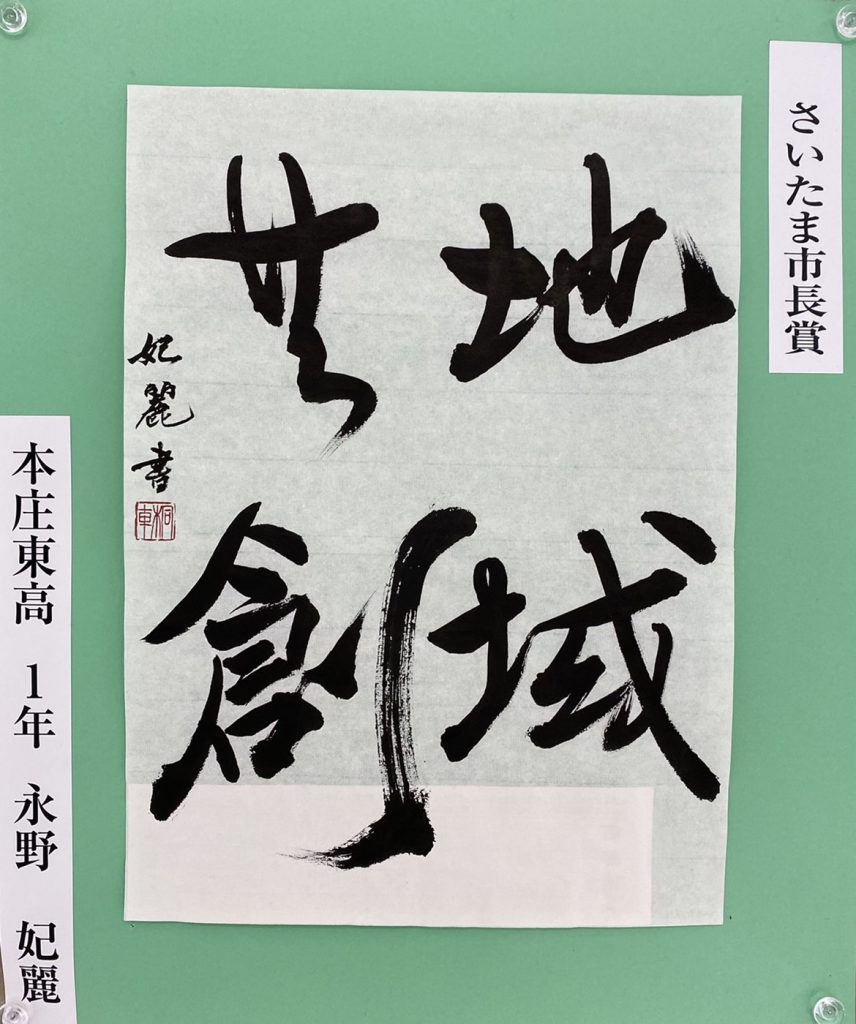 さいたま市長賞
地域
共創
妃麗書
本庄東高 1年 永野 妃麗